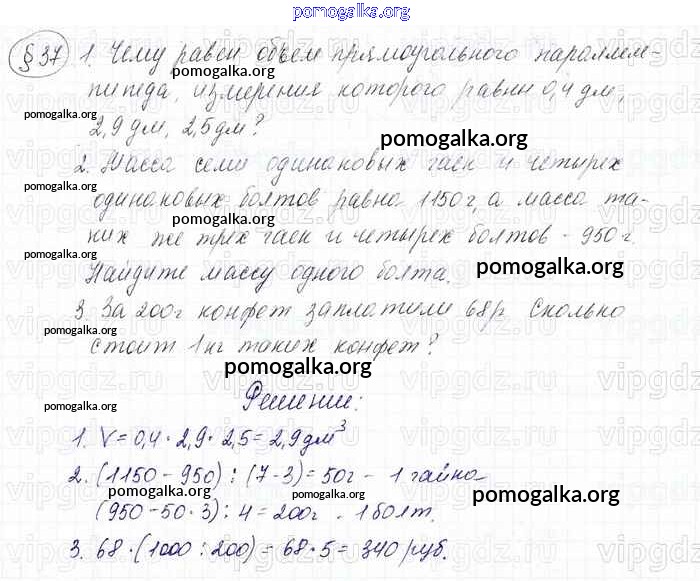 pomogalka.org
§ 37 1. Чему равен объем прямоугольного параллеле-
pomogalka.org
пипеда, измерения которого равны 0,4 дм,
pomogalka.org
2,9 дм, 2,5 дм?
pomogalka.org
2. Масса семи одинаковых гаек и четырех
pomogalka.org
одинаковых болтов равна 1150 г, а масса та-
pomogalka.org
ких же трех гаек и четырех болтов - 950 г.
pomogalka.org
Найдите массу одного болта.
pomogalka.org
3. За 200 г конфет заплатили 68 р. Сколько
pomogalka.org
стоит 1 кг таких конфет?
pomogalka.org
Решение:
pomogalka.org
1. V = 0,4 · 2,9 · 2,5 = 2,9 дм³
2. (1150 - 950) : (7 - 3) = 50 г - 1 гайка
pomogalka.org pomogalka.org pomogalka.org
(950 - 50 · 3) : 4 = 200 г - 1 болт.
3. 68 · (1000 : 200) = 68 · 5 = 340 руб.